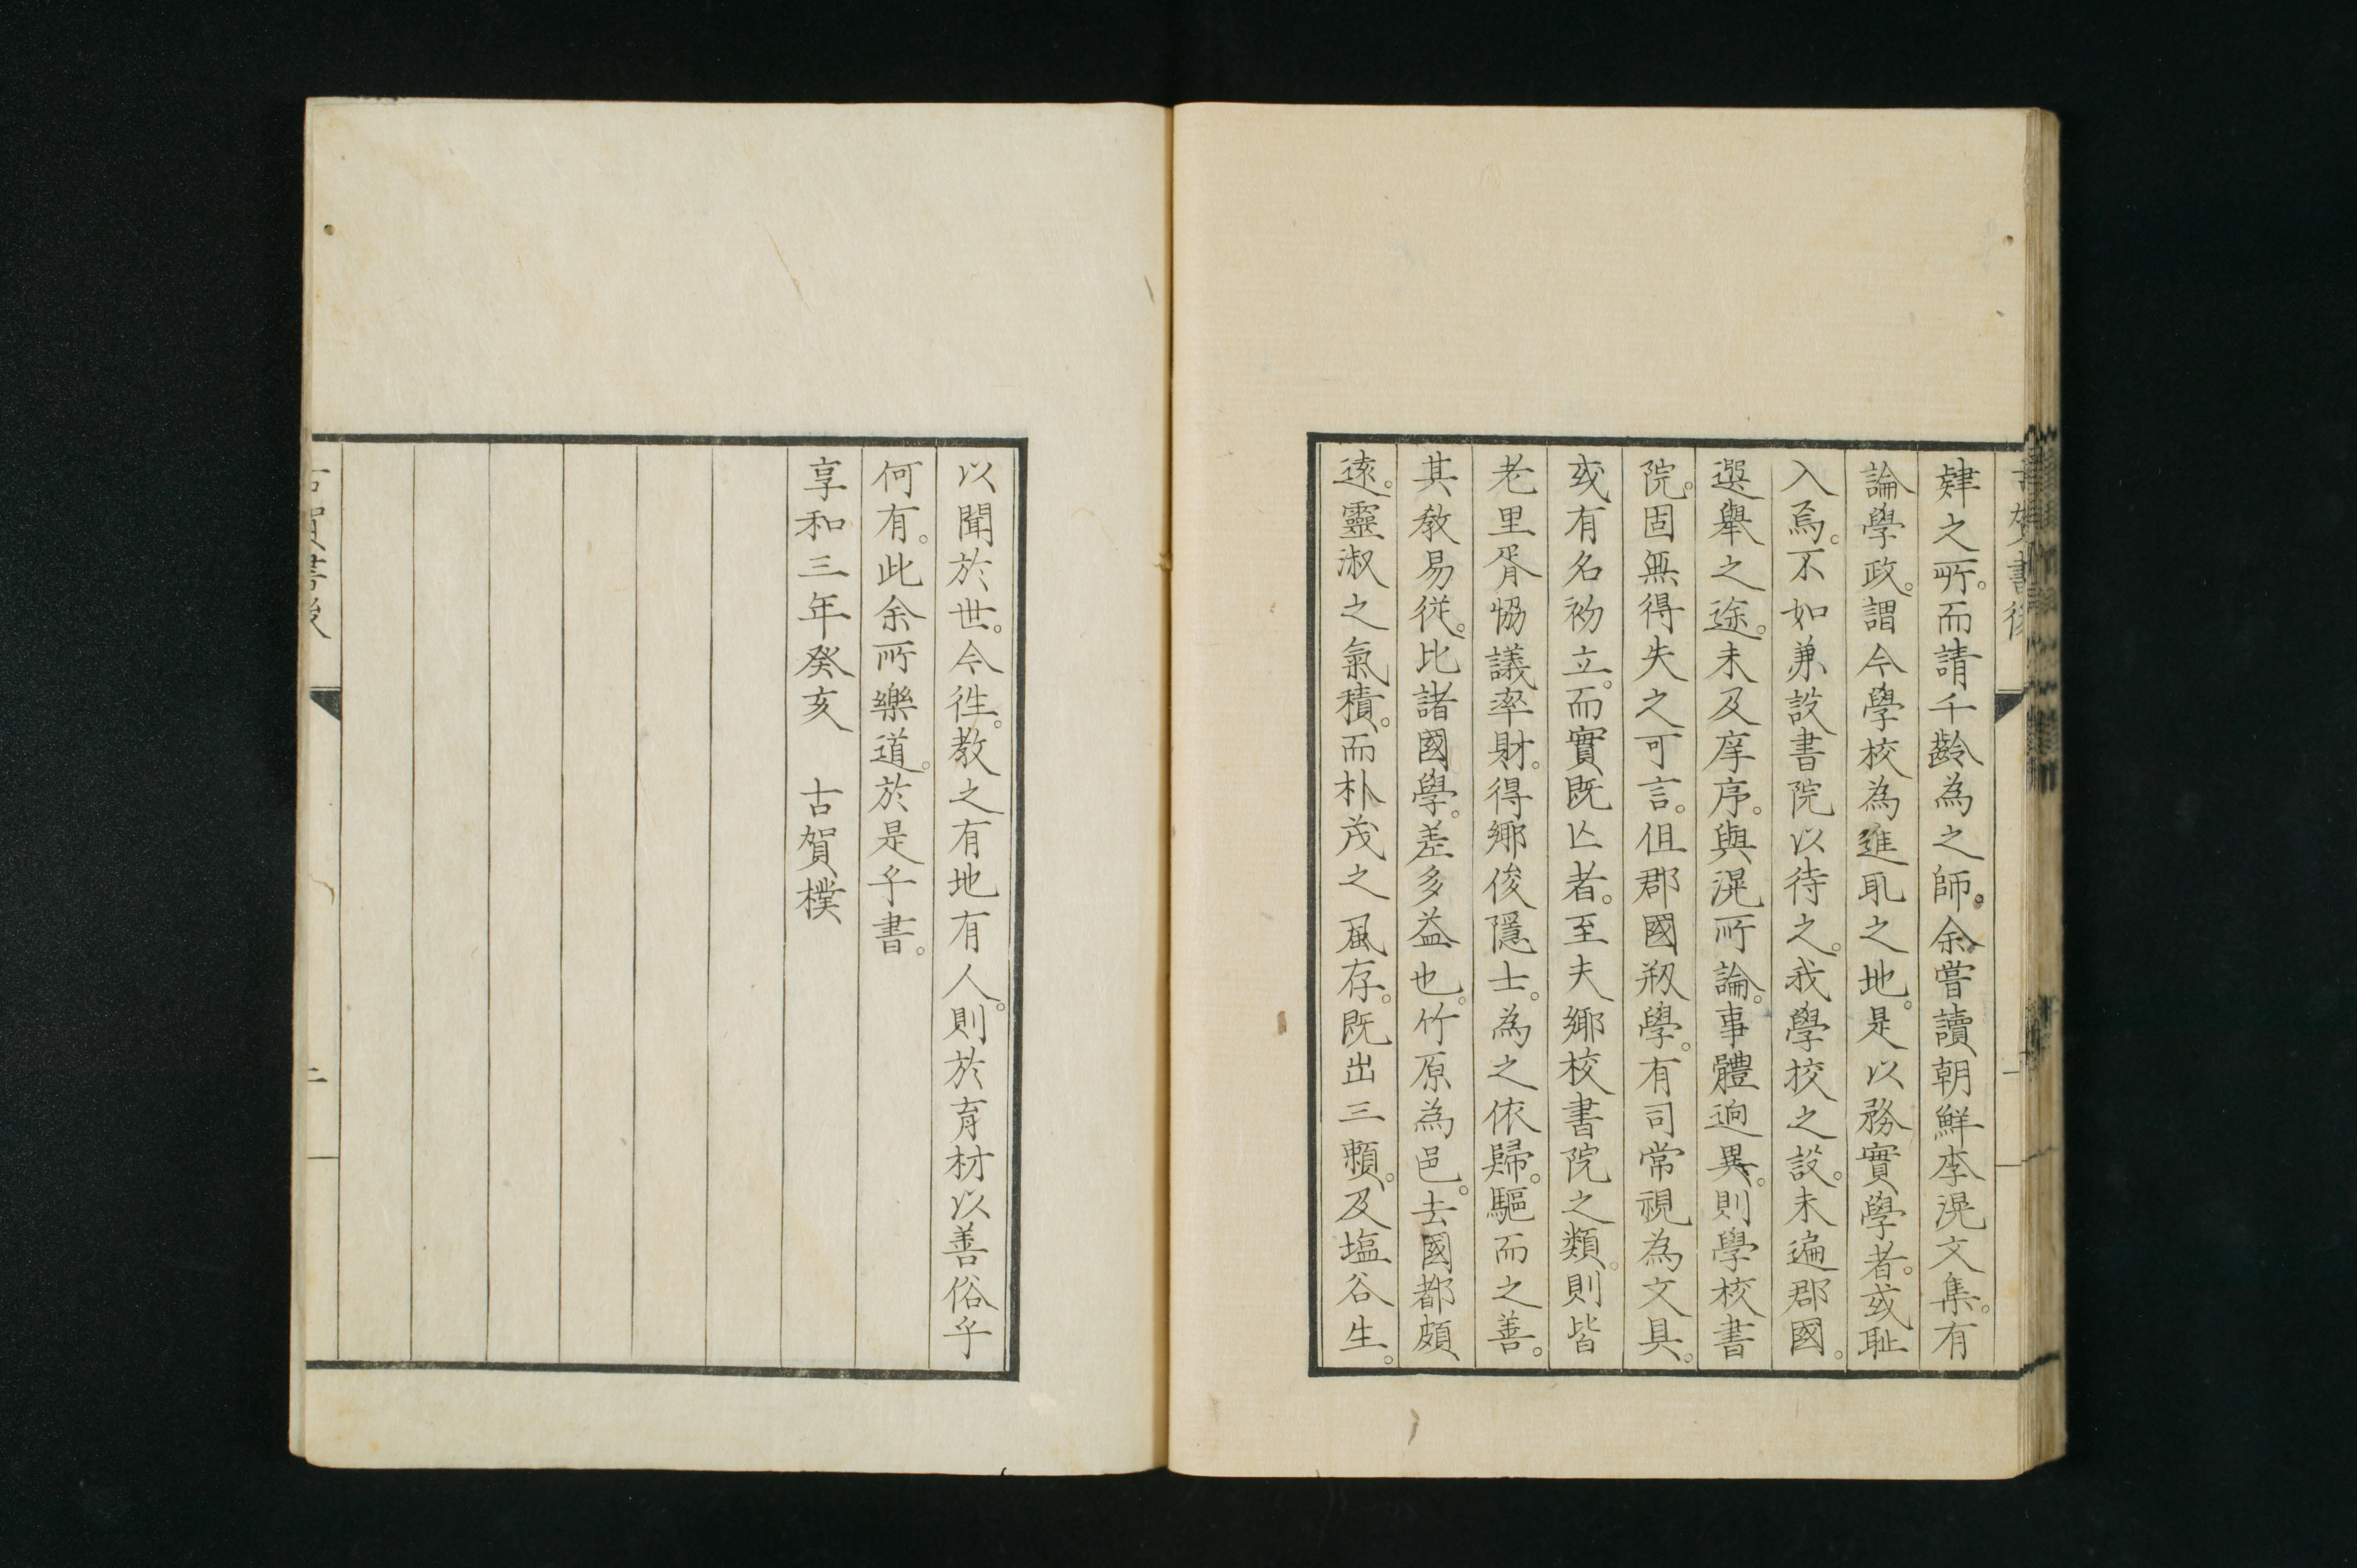 肄之所。而請千齡為之師。余嘗讀朝鮮李滉文集。有
論學政。謂今學校為進取之地。是以務實學者。或恥
入焉。不如兼設書院以待之。我學校之設。未遍郡國。
選舉之途。未及庠序。與滉所論。事體迥異。則學校書
院。固無得失之可言。但郡國刱學。有司常視為文具。
或有名初立。而實既亡者。至夫鄉校書院之類。則皆
老里胥協議率財。得鄉俊隱士。為之依歸。驅而之善。
其教易從。比諸國學。差多益也。竹原為邑。去國都頗
遠。靈淑之氣積。而朴茂之風存。既出三賴。及塩谷生。
以聞於世。今往。教之有地有人。則於育材以善俗乎
何有。此余所樂道。於是乎書。
享和三年癸亥　古賀樸
古賀書後
二